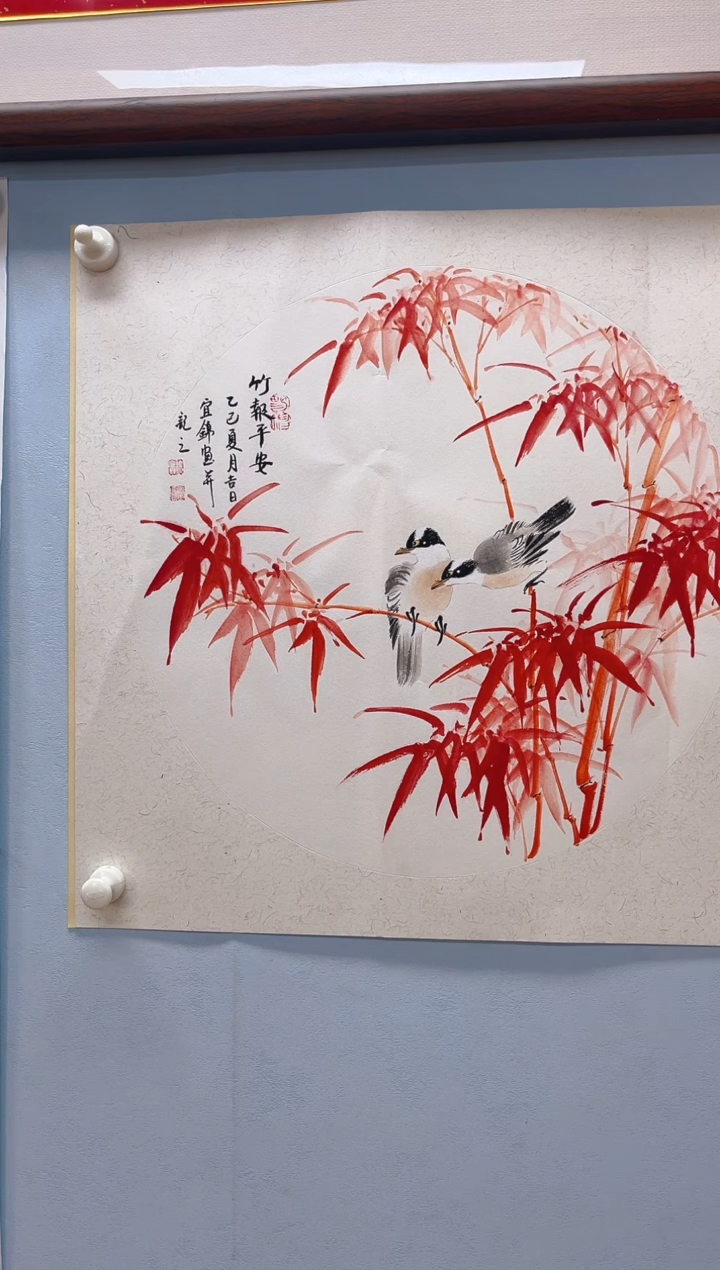 竹報平安
乙乙夏月吉日
宜錦畫并
觀之